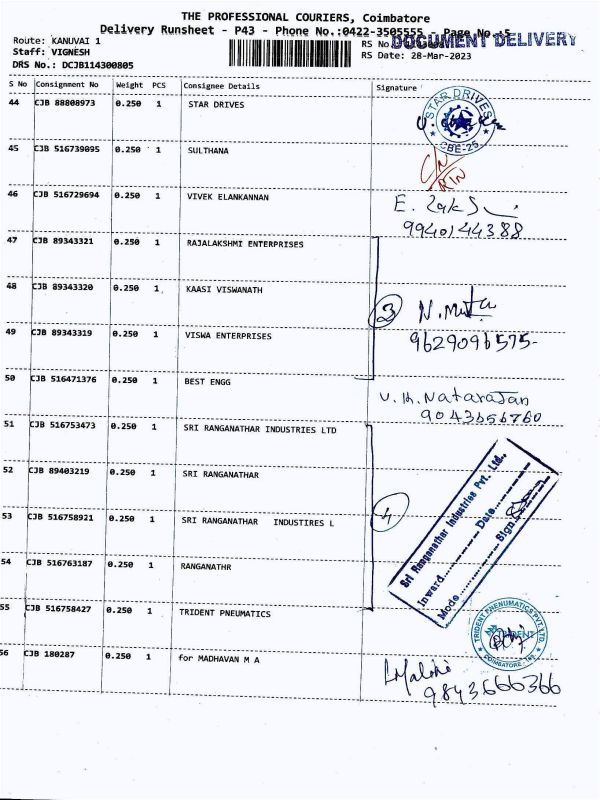 THE PROFESSIONAL COURIERS, Coimbatore
Delivery Runsheet - P43 - Phone No.:0422-3505555 - Page No.:5
Route: KANUVAI 1
RS No. DOCUMENT DELIVERY
Staff: VIGNESH
RS Date: 28-Mar-2023
DRS No.: DCJB114300805
S No Consignment No Weight PCS Consignee Details Signature
44 CJB 88808973 0.250 1 STAR DRIVES
STAR DRIVES
CBE-25
45 CJB 516739095 0.250 1 SULTHANA
46 CJB 516729694 0.250 1 VIVEK ELANKANNAN
9940144388
47 CJB 89343321 0.250 1 RAJALAKSHMI ENTERPRISES
48 CJB 89343320 0.250 1 KAASI VISWANATH
3
49 CJB 89343319 0.250 1 VISWA ENTERPRISES
9629096575-
50 CJB 516471376 0.250 1 BEST ENGG
V. K. Natarajan
9043656760
51 CJB 516753473 0.250 1 SRI RANGANATHAR INDUSTRIES LTD
52 CJB 89403219 0.250 1 SRI RANGANATHAR
53 CJB 516758921 0.250 1 SRI RANGANATHAR INDUSTIRES L
4
Sri Ranganathar Industries Pvt. Ltd.,
Inward.......... Date..........
Mode.......... Sign
54 CJB 516763187 0.250 1 RANGANATHR
55 CJB 516758427 0.250 1 TRIDENT PNEUMATICS
TRIDENT PNENUMATICS PVT. LTD.
TRIDENT
COIMBATORE
56 CJB 180287 0.250 1 for MADHAVAN M A
9843666366